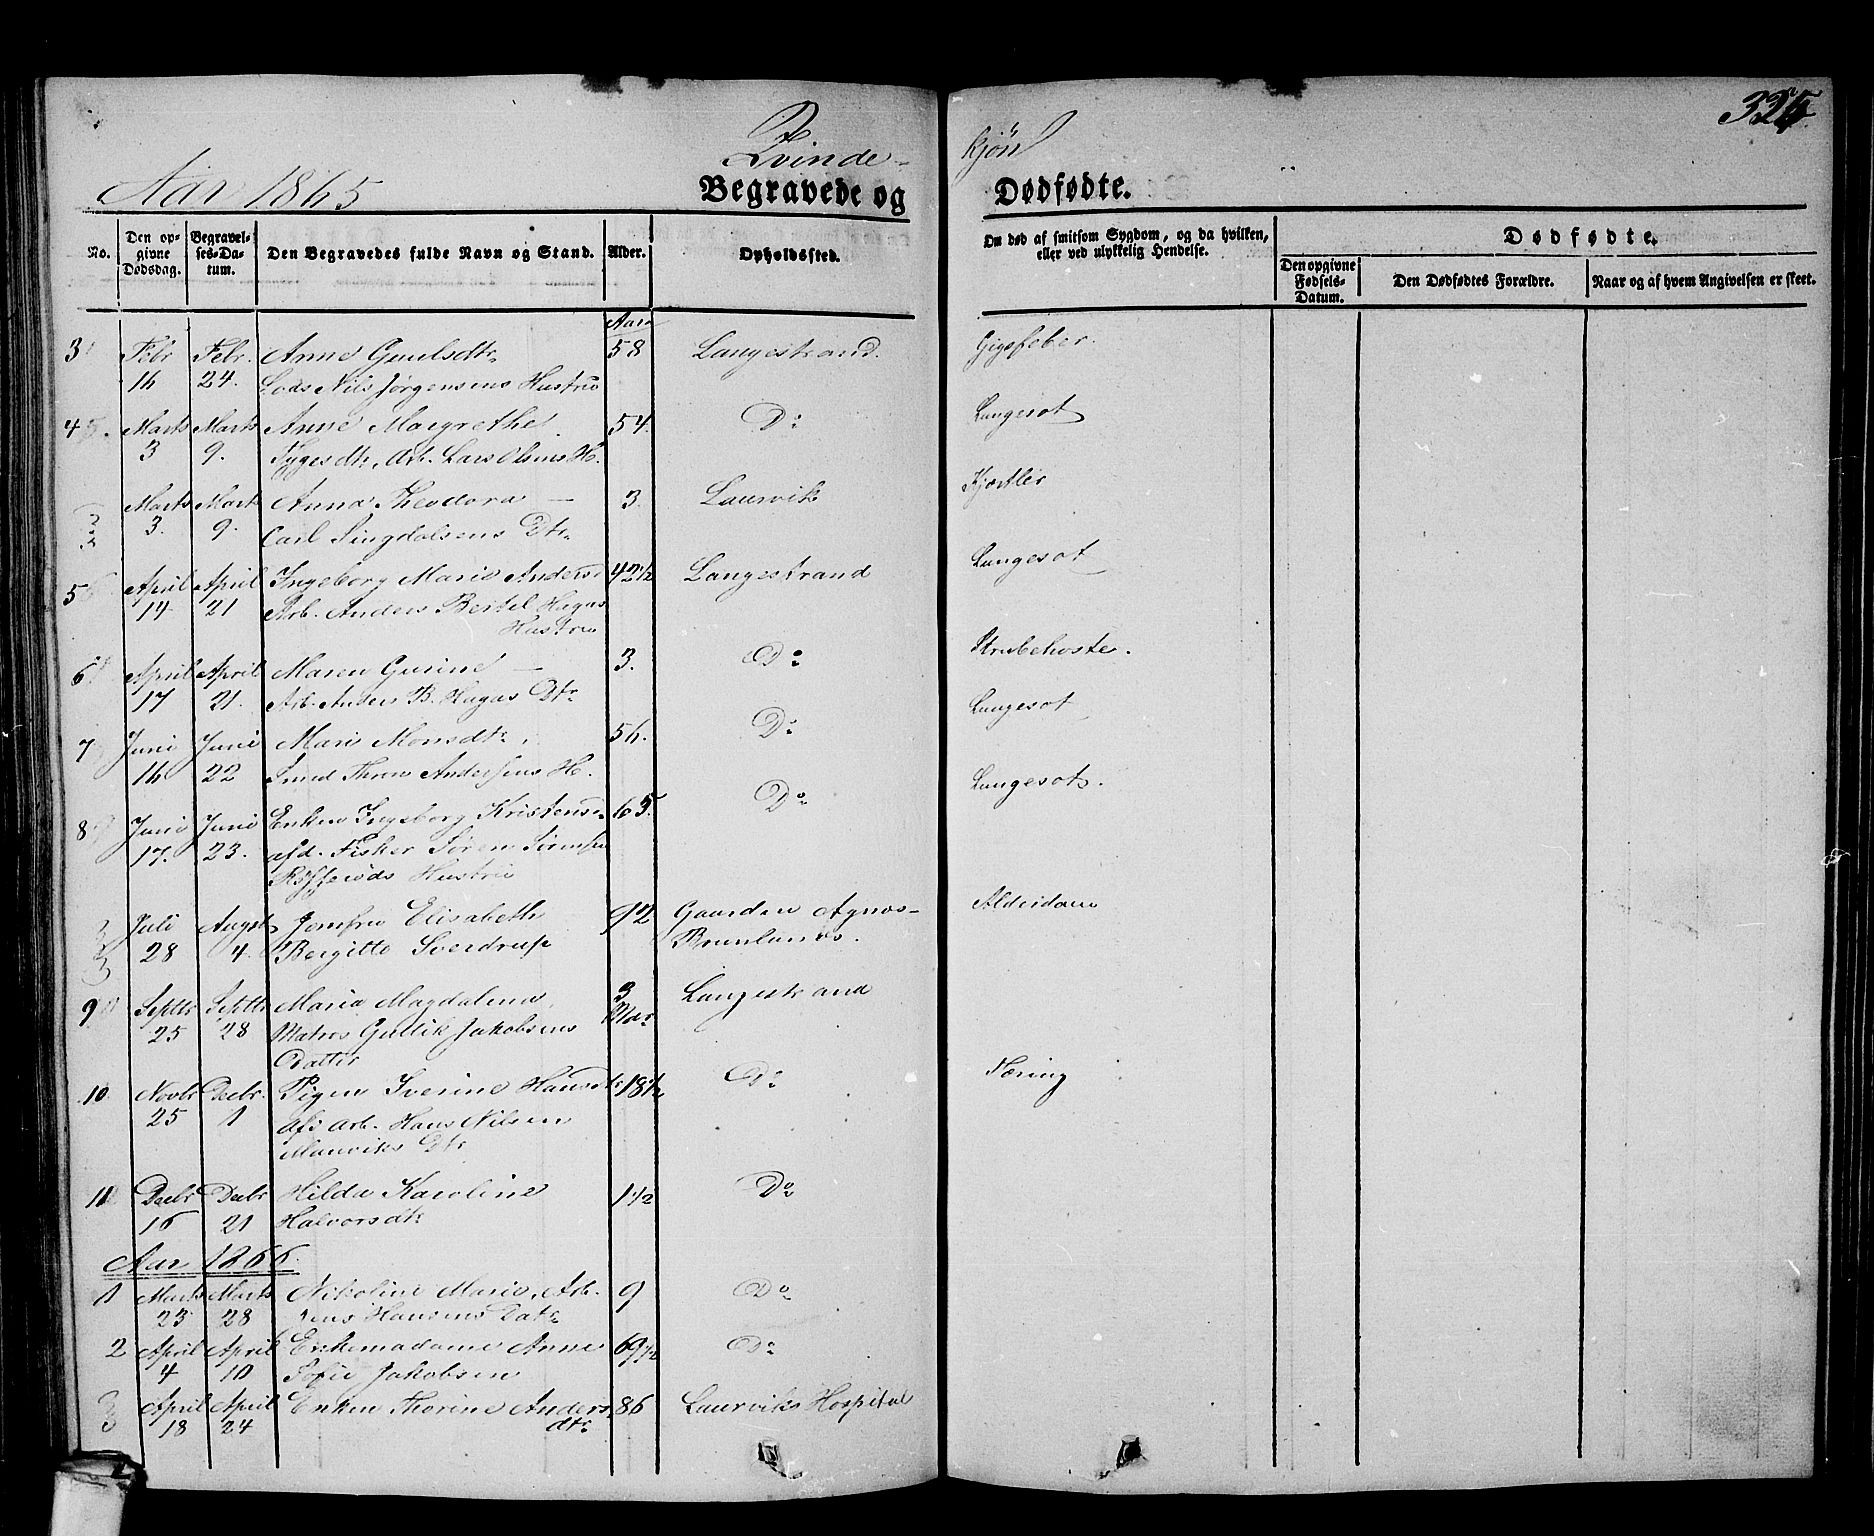 325
Qvinde-
kjøn
Aar 1865
Begravede og
Dødfødte.
No.
Den op-
givne
Dødsdag.
Begravel-
ses-Da-
tum.
Den Begravedes fulde Navn og Stand.
Alder.
Opholdssted.
Om død af smitsom Sygdom, og da hvilken,
eller ved ulykkelig Hendelse.
Dødfødte.
Den opgivne
Fødsels-
Datum.
Den Dødfødtes Forældre.
Naar og af hvem Angivelsen er skeet.
Aar
3 Febr Febr. Anne 58 Langestrand. Gigtfeber.
16 24. Lods Nils Jørgensens Hustru
4 Marts Marts Anne Margrethe 54. Do Lungesot
3 9. Tygesdtr. Arb. Lars Olsens H.
Marts Marts Anna Theodora — 3. Laurvik Kjertler
3. 9. Carl Dtr.
5 April April Ingeborg Marie Anders 42 1/2 Langestrand Lungesot
14 21 Arb. Anders Bertel Hagas
Hustru
6 April April Maren Gurine — 3. Do Strubehoste.
17 21. Arb. Anders B. Hagas Dtr
7 Juni Juni Mari Monsdtr, 56. Do Lungesot
16 22 Smed Thron Andersens H.
8 Juni Juni Enken Ingeborg Kristens 65. Do Lungesot.
17. 23. afd. Fisker Søren
Hustru
Juli Augst Jomfru Elisabeth 92 Gaarden Agnes- Alderdom
28 4. Bergitte Sverdrup Brunlanæs.
9 Septbr Septbr Maria Magdalena, 3 Langestrand
25 28 Matros Gullik Jakobsens Mdr
Datter
10 Novbr Decbr. Pigen Iverine Hansdtr 18 1/2 Do Tæring
25 1 afd. arb. Hans Nilsen
Dtr
11 Decbr Decbr Hilda Karoline 1 1/2 Do
16 21 Halvorsdtr
Aar 1866.
1 Marts Marts Nikoline Marie, Arb. 9 Do
23 28 Jens Hansens Datr
2 April April Enkemadame Anne 69 1/2 Do
4 10 Sofie Jakobsen
3 April April Enken Thorine Anders 86 Laurviks Hospital
18 24 dtr